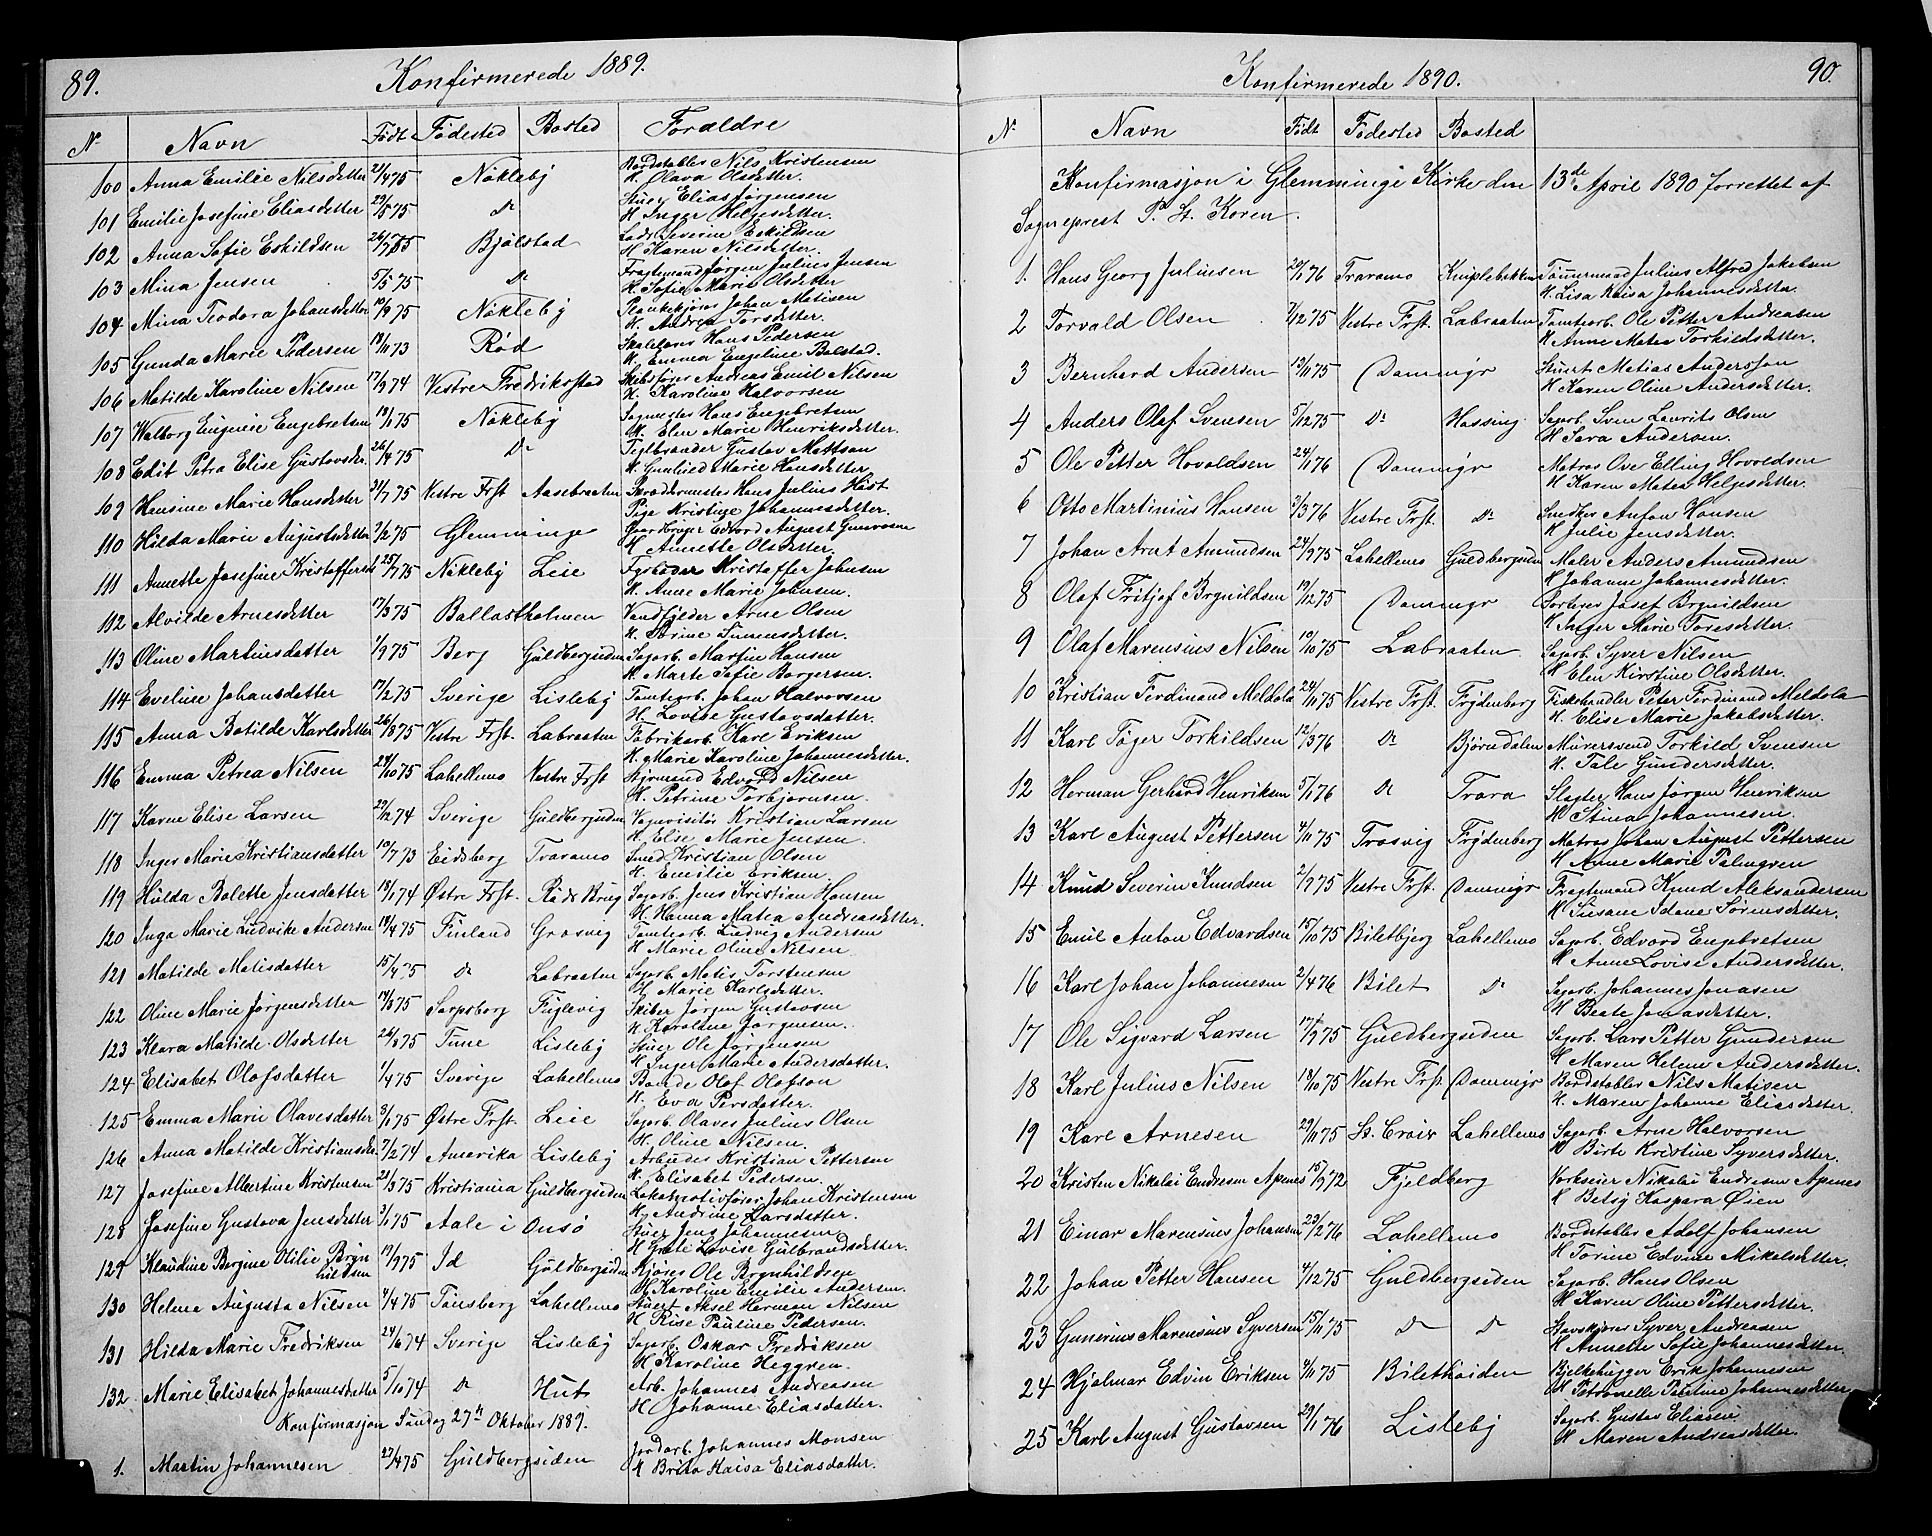 89.
Konfirmerede 1889.
No Navn Födt Födested Bosted Foraldre
100 Anna Emilie Nilsdatter 21/4 75 Nöklebÿ Bordstabler Nils Kristensen
H. Olava Olsdetter.
101 Emilie Josefine Eliasdetter 29/5 75 Do Stuer Elias Jørgensen
H. Inger Helgesdetter.
102 Anna Sofie Eskildsen 26/7 75 Bjölstad Severin Eskildsen
H. Karen Nilsdetter.
103 Mina Jensen 5/5 75 Do Fragtemand Jørgen Julius Jensen
H. Sofie Marie Olsdetter
104 Mina Teodora Johansdetter 10/9 75 Nöklebÿ Plankekjører Johan Matisen
H. Andrea Torsdetter.
105 Gunda Marie Pedersen 19/11 73 Röd Hans Pedersen
H. Emma Engeline Bolstad.
106 Matilde Karoline Nilsen 17/9 74 Vestre Fredrikstad Skibsförer Andreas Emil Nilsen
H. Karoline Halvorsen
107 Walborg Eugenie Engebretsen 75 Nöklebÿ Hans Engebretsen
H. Elen Marie Henriksdetter.
108 Edit Petra Elise Gustavsdr. 26/4 75 Do Teglbrænder Gustav Mattson
H. Marie Hansdetter.
109 Hansine Marie Hansdetter 31/7 75 Vestre Frst Aasebraaten Skræddermester Hans Julius Höst
Pige Kristine Johannesdetter.
110 Hilda Marie Augustsdetter 7/2 75 Glemminge Gaardbruger Edvard August Gunersen
H. Annette Olsdetter.
111 Annette Josefine Kristoffersen 25/7 75 Nöklebÿ Leie Kristoffer Johnsen
H. Anne Marie Johnsen.
112 Alvilde Arnesdetter 17/3 75 Ballastholmen Arne Olsen
H.
113 Oline Martinsdatter 1/9 75 Berg Guldbergsiden Sagarb. Martin Hansen
H. Marte Sofie Borgersen.
114 Eveline Johansdatter 17/2 75 Sverige Lislebÿ Tomtearb. Johan Halvorsen
H. Lovise Gustavsdatter.
115 Anna Botilde Karlsdetter 26/3 75 Vestre Frst. Labraaten Fabrikarb. Karl Eriksen
H. Marie Karoline Johannesdetter.
116 Emma Petrea Nilsen 24/10 75 Lahellemo Vestre Frst Styrmand Edvard Nilsen
H. Petrine Torbjørnsen.
117 Karen Elise Larsen 29/12 74 Sverige Guldbergsiden Kristian Larsen
H. Elise Marie Jensen.
118 Inger Marie Kristiansdatter 10/7 73 Eidsberg Traramo Smed Kristian Olsen
H. Emilie Eriksen.
119 Hulda Bolette Jensdatter 18/1 74 Østre Frst. Röds Brug Sagarb. Jens Kristian Hansen
H. Hanna Matea Andreasdetter.
120 Inga Marie Ludvike Andersen 18/4 75 Finland Grosvig Tomtearb. Ludvig Andersen
H. Marie Oline Nilsen.
121 Matilde Matisdatter 15/4 75 Do Labraaten Sagarb. Matis Torstensen
H. Marie Karlsdetter.
122 Oline Marie Jørgensdetter 14/3 75 Sarpsborg Fuglevig Skiber Jørgen Gustavsen
H. Karoline Jørgensen.
123 Klara Matilde Olsdetter 26/3 75 Tune Lislebÿ Stuer Ole Jørgensen
H. Inger Marie Andersdatter.
124 Elisabet Olofsdatter 1/4 75 Sverige Lahellemo Bonde Olof Olofson
H. Eva Persdatter.
125 Emma Marie Olavesdatter 3/1 75 Østre Frst. Leie Sagarb. Olaves Julius Olsen
H. Oline Nilsen.
126 Anna Matilde Kristiansdr. 7/2 74 Amerika Lislebÿ Arbeider Kristian Pettersen
H. Elisabet Pedersen.
127 Josefine Albertine Kristensen 21/3 75 Kristiania Guldbergsiden Lokomotivfører Johan Kristensen
H. Andrine Larsdatter.
128 Josefine Gustava Jensdetter 3/1 75 Aale i Onsö Stuer Jens Johannesen
H. Grete Lovise Gulbrandsdetter.
129 Klaudine Bergine Otilie Bryn- 19/9 75 Id Guldbergsiden Kjører Ole Brynhildsen
hildsen H. Karoline Emilie Andersen.
130 Helma Augusta Nilsen 4/4 75 Tønsberg Lahellemo Stuert Aksel Herman Nilsen
H. Rise Pauline Pedersen.
131 Hilda Marie Fredriksen 24/6 74 Sverige Lislebÿ Sagarb. Oskar Fredriksen
H. Karoline Heggren.
132 Marie Elisabet Johannesdetter 5/10 74 Do Hut Arb. Johannes Andreasen
H. Johanne Eliasdatter.
Konfirmasjon Søndag 27de Oktober 1889.
1. Martin Johannesen 27/4 75 Guldbergsiden Jordarb. Johannes Monsen
H. Brita Kaisa Eliasdatter.
90.
Konfirmerede 1890.
No Navn Födt Födested Bosted
Konfirmasjon i Glemminge Kirke den 13de April 1890 forrettet af
Sogneprest P. St. Koren.
1. Hans Georg Juliusen 20/1 76 Traramo Kniplebakken Tømmermand Julius Alfred Jakobsen
H. Lisa Kaisa Johannesdetter
2 Torvald Olsen 7/12 75 Vestre Frst. Labraaten Tomtearb. Ole Petter Andreasen
H. Anne Matea Torkildsdetter.
3 Bernhard Andersen 13/11 75 Dammyr Stuert Matias Anderssøn
H. Karen Oline Andersdetter.
4 Anders Olaf Svensen 5/12 75 Do Hassing Sagarb. Sven Laurits Olsen
H. Sara Andersen.
5 Ole Petter Hovaldsen 24/1 76 Dammyr Matros Ove Elling Hovoldsen
H. Karen Matea Helgesdetter.
6 Otto Martinius Hansen 3/3 76 Vestre Frst. Do Snedker Anton Hansen
H. Julie Jensdetter.
7 Johan Arnt Amundsen 24/9 75 Lahellemo Guldbergsiden Maler Anders Amundsen
H. Johanne Johannesdetter.
8 Olaf Fritjof Brynildsen 19/12 75 Dammyr Josef Brynildsen
H. Inger Marie Toresdetter.
9 Olaf Marensius Nilsen 10/10 75 Labraaten. Sagarb. Syver Nilsen
H. Elen Kirstine Olsdetter.
10 Kristian Ferdinand Meldola 29/11 75 Vestre Frst. Frydenberg Fiskehandler Peter Ferdinand Meldola
H. Elise Marie Jakobsdetter.
11 Karl Töger Torkildsen 12/3 76 Do Bjørndalen Murersvend Torkild Svensen
H. Tale Gundersdetter.
12 Herman Gerhard Henriksen 5/1 76 Do Trara Slagter Hans Jørgen Henriksen
H. Stina Johannesen.
13 Karl August Pettersen 4/11 75 Trosvig Frydenberg Matros Johan August Pettersen
H. Anne Marie Palmgren
14 Knud Severin Knudsen 2/9 75 Vestre Frst. Dammyr Fragtemand Knud Aleksandersen
H. Susane Idane Sørensdetter.
15 Emil Anton Edvardsen 15/10 75 Biletbjerg Lahellemo Sagarb. Edvard Engebretsen
H. Anne Lovise Andersdetter.
16 Karl Johan Johannesen 2/4 76 Bilet Do Sagarb. Johannes Jonasen
H. Beate Jonasdetter.
17 Ole Sigvard Larsen 17/9 75 Guldbergsiden Sagarb. Lars Petter Gundersen
H. Maren Helene Andersdetter.
18 Karl Julius Nilsen 18/10 75 Vestre Frst. Dammyr Bordstabler Nils Matisen
H. Maren Johanne Eliasdetter.
19 Karl Arnesen 29/11 75 St. Croix Lahellemo Sagarb. Arne Halvorsen
H. Birte Kristine Syversdetter.
20 Kristen Nikolai Endresen Apenes 15/9 72 Fjeldberg Værkseier Nikolai Endresen Apenes
H. Betsy Kaspara Øien
21 Einar Marensius Johansen 23/2 76 Lahellemo Bordstabler Adolf Johansen
H. Torine Edvine Mikalsdetter.
22 Johan Petter Hansen 4/12 75 Guldbergsiden Sagarb. Hans Olsen
H. Karen Oline Pettersdetter.
23 Gunerius Marensius Syversen 15/11 75 Do Do Syver Andreasen
H. Annette Sofie Johannesdetter.
24 Hjalmar Edvin Eriksen 4/11 75 Bilethøiden Bjelkehugger Erik Johannesen
H. Petronelle Pauline Johannesdetter
25 Karl August Gustavsen 29/1 76 Lislebÿ Sagarb. Gustav Eliasen
H. Maren Andreasdetter.